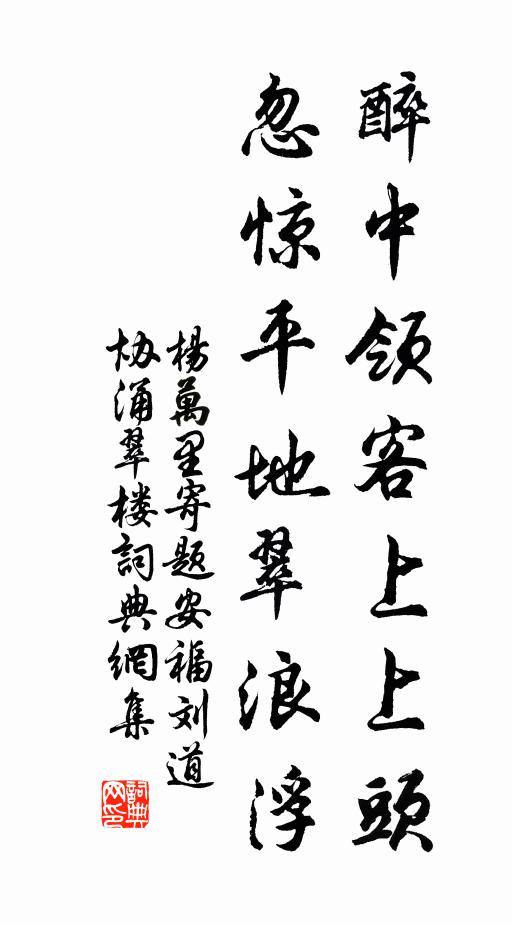 醉中領客上上頭
忽惊平地翠浪浮
楊萬里寄题安福刘道
协涌翠楼詞典網集
詞典网印